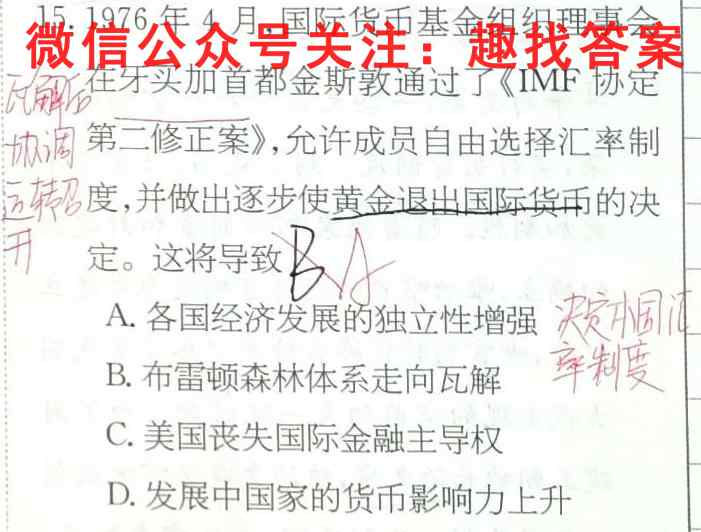 15. 1976 年 4 月,国际货币基金组织理事会
微信公众号关注：趣找答案
在牙买加首都金斯敦通过了《IMF 协定
第二修正案》,允许成员自由选择汇率制
度,并做出逐步使黄金退出国际货币的决
定。这将导致 B A
A. 各国经济发展的独立性增强
决定本国汇
率制度
B. 布雷顿森林体系走向瓦解
C. 美国丧失国际金融主导权
D. 发展中国家的货币影响力上升
瓦解后
协调
运转召
开